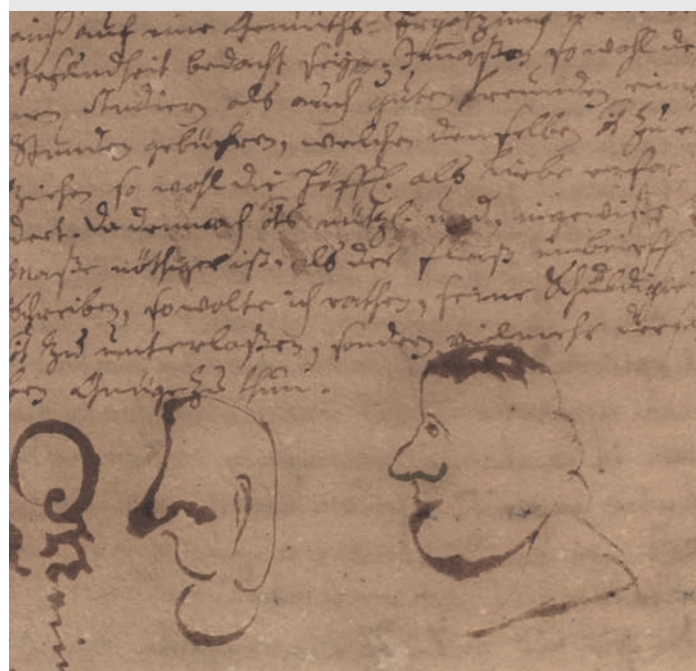 auch auf eine Gemüths-Ergötzung u
Gesundheit bedacht seyn. Inmaßen sowohl de
Studiern als auch guten Freunden eini
Stunden gebühren, welchen denselben zu e
ziehen so wohl die Höffl. als Liebe erfor
dert. Da dennoch nützl. und
Maße nöthiger ist, als der Fleiß im
Schreiben, so wolte ich rathen, seine Schuldigkei
zu unterlaßen, sondern vielmehr
ben Gnüge zu thun.